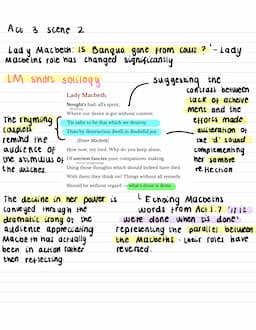 Act 3 scene 2
Lady Macbeth: is Banquo gone from court? - Lady
Macbeths role has changed significantly
LM short soliloqy
suggesting the
contrast between
lack of achieve
ment and the
efforts made.
alliteration of
the 'd' sound
complementing
her sombre
reflection
The rhyming
couplets
remind the
audience of
the stimulus of
the witches
Lady Macbeth
Nought's had, all's spent,
Where our desire is got without content.
'Tis safer to be that which we destroy
Than by destruction dwell in doubtful joy.
[Enter Macbeth]
How now, my lord. Why do you keep alone,
Of sorriest fancies your companions making,
Using those thoughts which should indeed have died
With them they think on? Things without all remedy
Should be without regard: what's done is done.
The decline in her power is
conveyed through the
dramatic irony of the
audience appreciating
Macbeth has actually
been in action rather
then reflecting
Echoing Macbeths
words from Act 1.7 'if it
were done when tis done'
representing the parallel between
the Macbeths - their roles have
reversed.